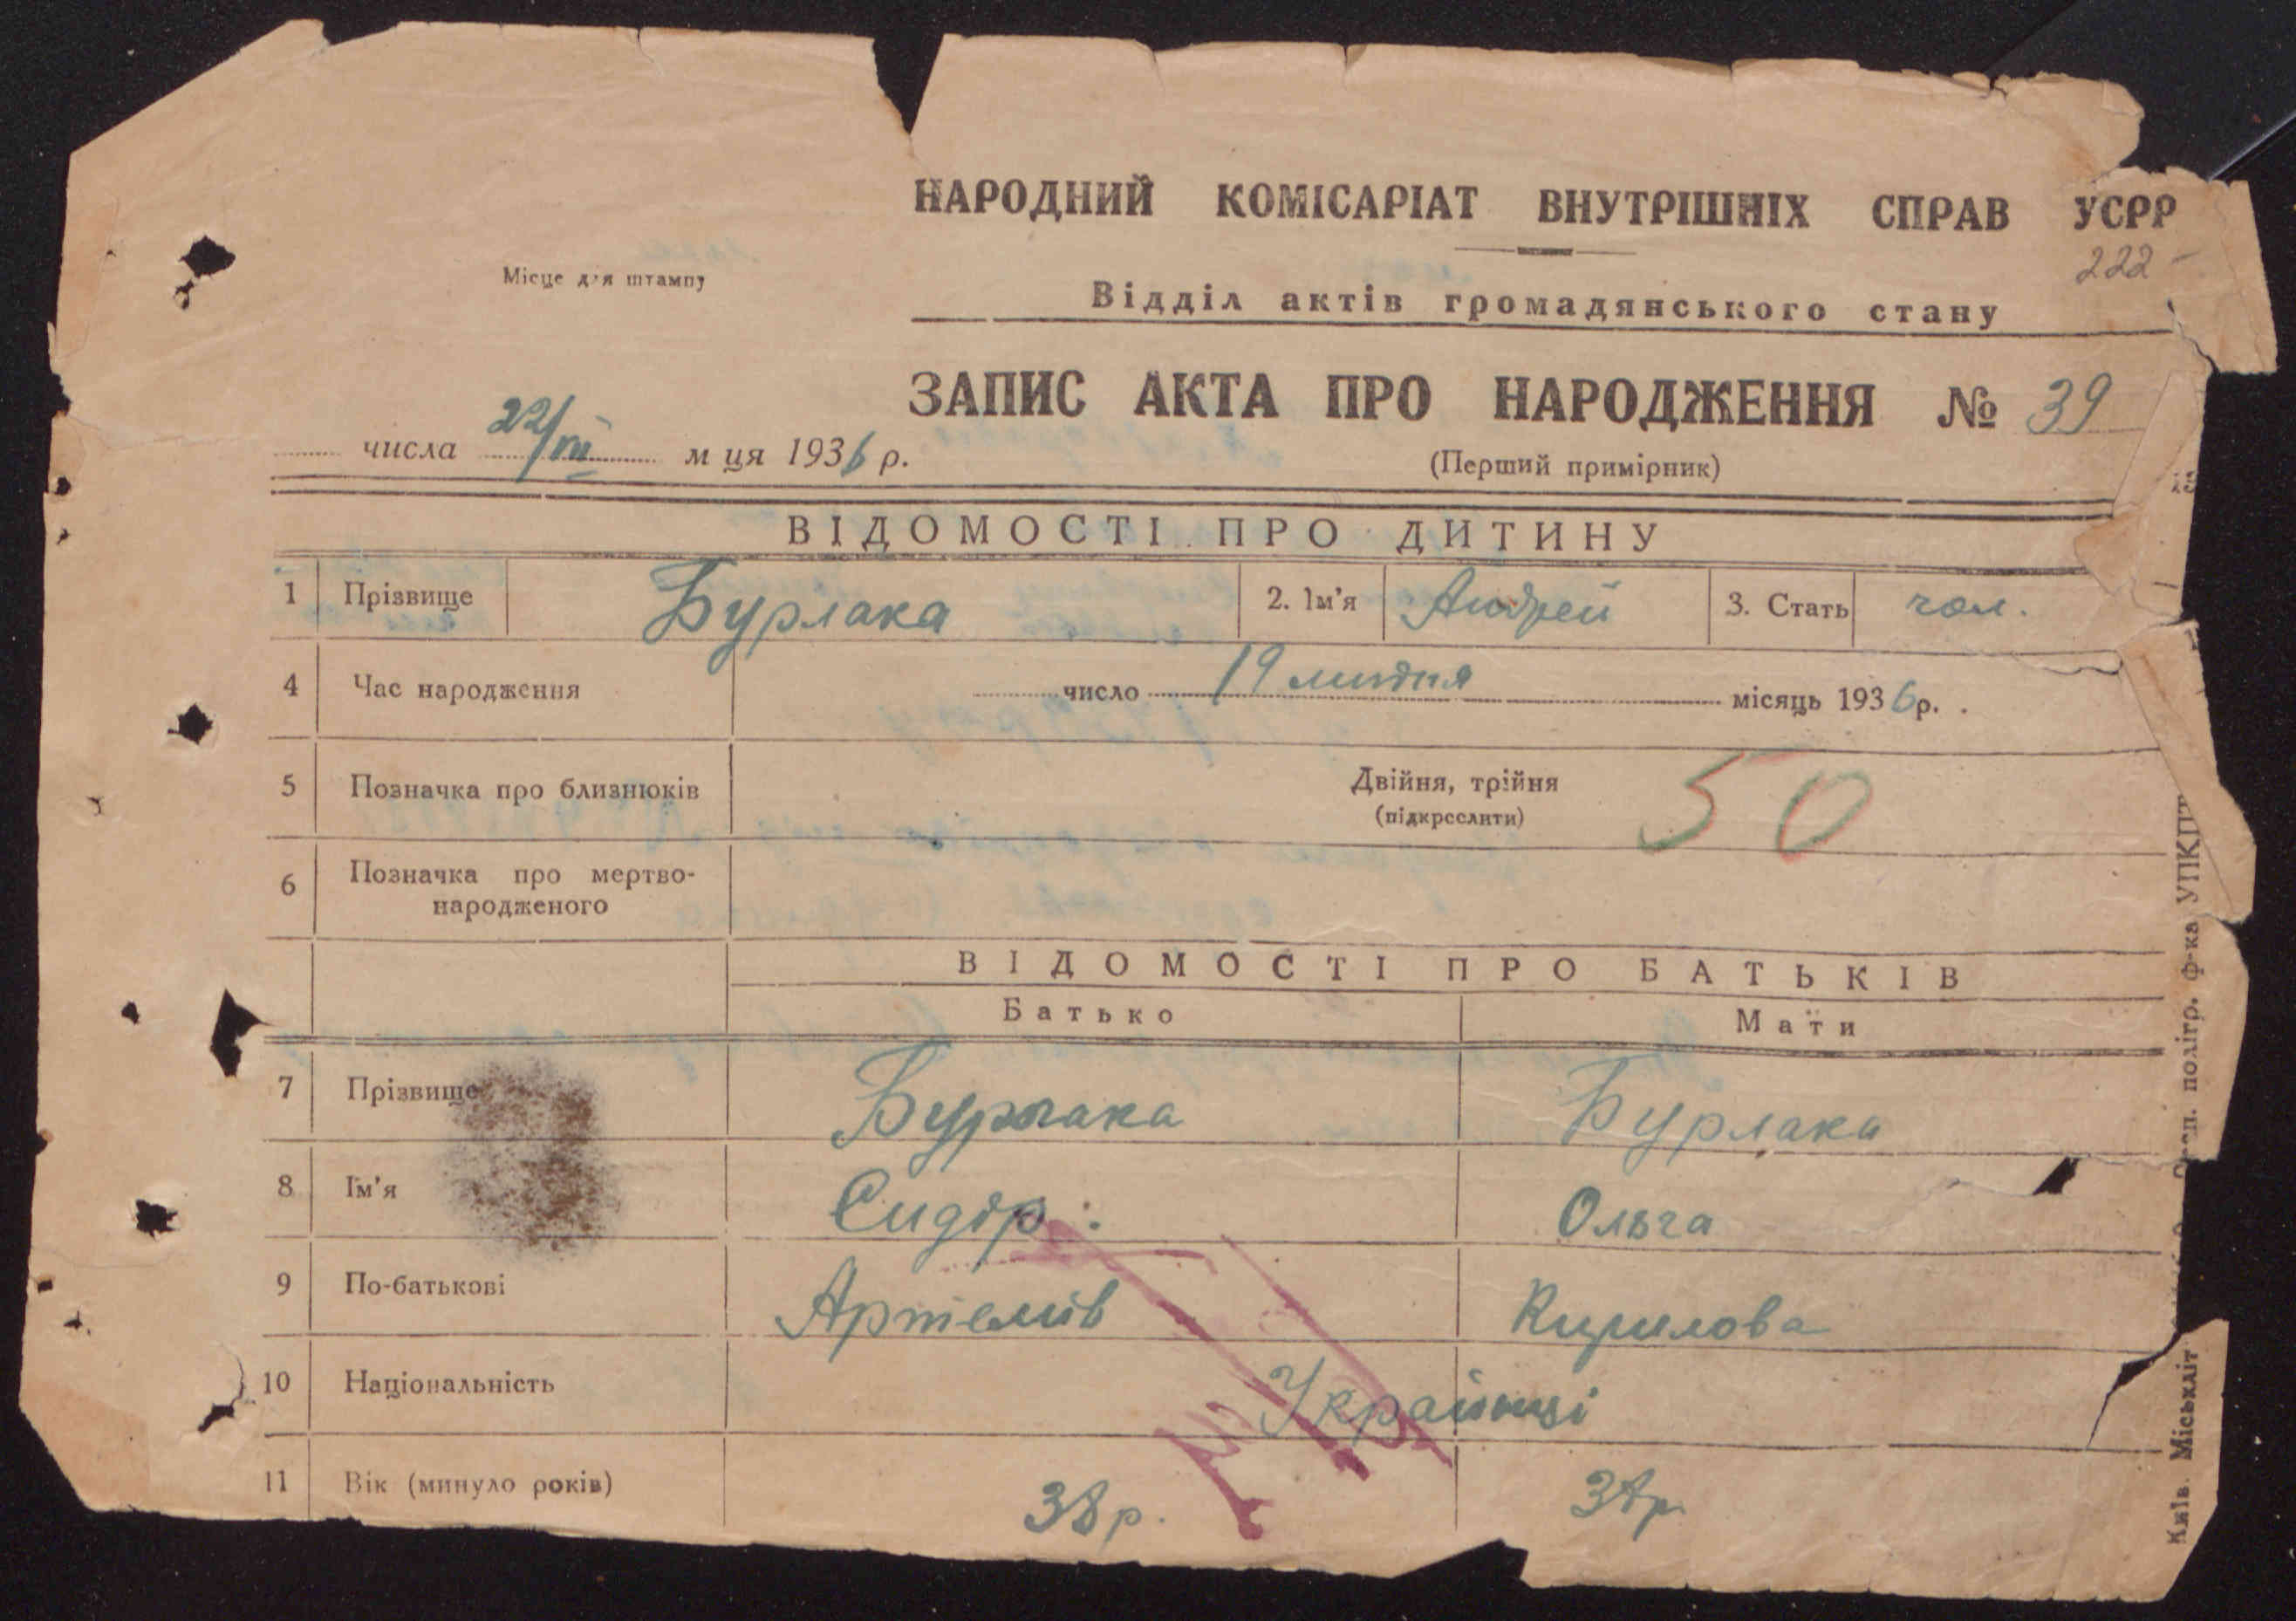 НАРОДНИЙ КОМІСАРІАТ ВНУТРІШНІХ СПРАВ УСРР
222
Місце для штампу
Відділ актів громадянського стану
ЗАПИС АКТА ПРО НАРОДЖЕННЯ № 39
числа 22/VII м ця 1936 р.
(Перший примірник)
ВІДОМОСТІ ПРО ДИТИНУ
1 Прізвище Бурлака 2. Ім'я Андрей 3. Стать чол.
4 Час народження число 19 липня місяць 1936 р.
5 Позначка про близнюків Двійня, трійня
(підкреслити)
50
6 Позначка про мертво-
народженого
ВІДОМОСТІ ПРО БАТЬКІВ
Батько Мати
7 Прізвище Бурлака Бурлака
8 Ім'я Сидір Ольга
9 По-батькові Артемів Кирилова
10 Національність Українці
11 Вік (минуло років) 38 р. р.
Київ. Міськліт
полігр. ф-ка УПКПТ